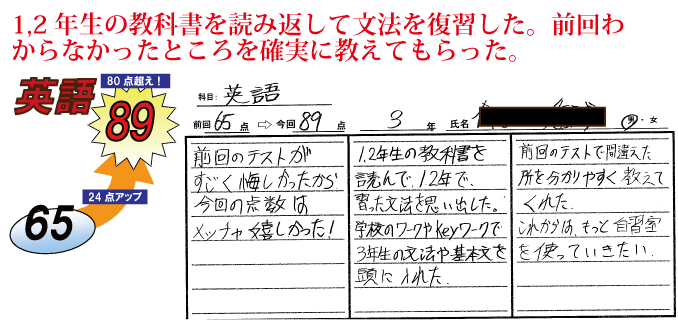 1,2年生の教科書を読み返して文法を復習した。前回わ
からなかったところを確実に教えてもらった。
英語
80点超え!
89
24点アップ
65
科目: 英語
前回 65 点 ⇨ 今回 89 点 3 年 氏名 男・女
前回のテストが
すごく悔しかったから
今回の点数は
メッチャ嬉しかった!
1,2年生の教科書を
読んで、1,2年で、
習った文法を思い出した。
学校のワークやkeyワークで
3年生の文法や基本文を
頭に入れた.
前回のテストで間違えた
所を分かりやすく教えて
くれた.
これからは、もっと自習室
を使っていきたい.